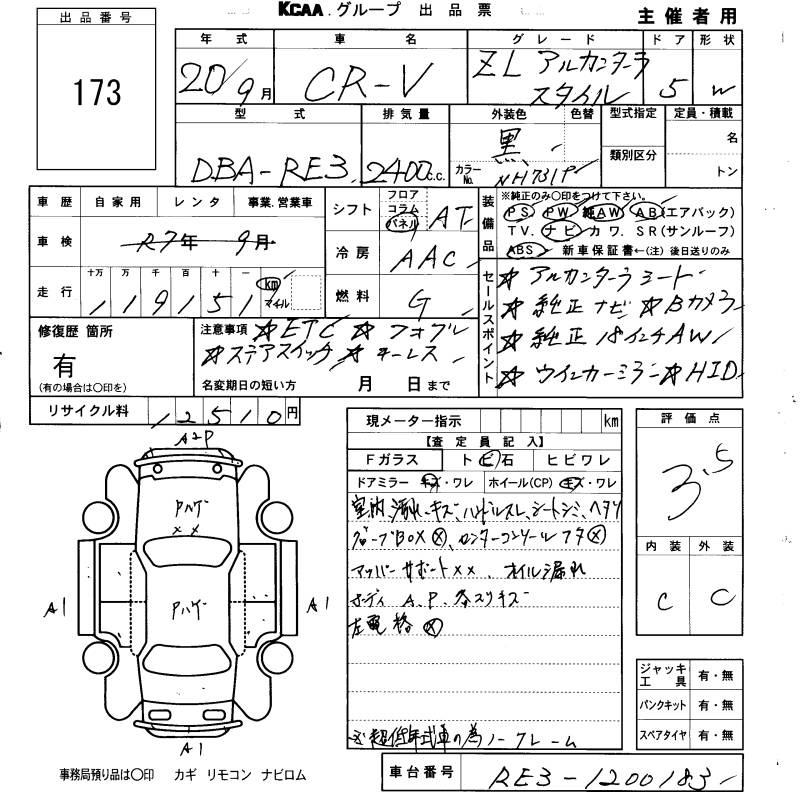 KCAA.グループ 出品票
主催者用
出品番号
173
年式 車名 グレード ドア 形状
20/9月 CR-V ZL アルカンターラ スタイル 5 W
型式 排気量 外装色 色替 型式指定 定員・積載
DBA-RE3 2400c.c. 黒 カラーNo. NH731P 類別区分 名 トン
車歴 自家用 レンタ 事業.営業車
車検 R7年 9月
走行 十万 万 千 百 十 一 km マイル
119151
シフト フロア コラム パネル AT
冷房 AAC
燃料 G
装備品 ※純正のみ○印をつけて下さい。
PS PW 純AW AB(エアバック)
TV. ナビ カワ. SR(サンルーフ)
ABS 新車保証書←(注) 後日送りのみ
セールスポイント
☆アルカンターラシート
☆純正ナビ ☆Bカメラ
☆純正18インチAW
☆ウインカーミラー☆HID
修復歴 箇所
有
(有の場合は○印を)
注意事項 ☆ETC ☆フォグ
☆ステアスイッチ ☆キーレス
名変期日の短い方 月 日まで
リサイクル料 12510円
現メーター指示 km
【査定員記入】
Fガラス トビ石 ヒビワレ
ドアミラー キズ・ワレ ホイール(CP) キズ・ワレ
室内 汚れ、キズ、ハンドルスレ、シートシミ、ヘタリ
グローブBOX ×、センターコンソールフタ ×
アッパーサポート××、オイル漏れ
ボディ A.P.各スリキズ
左電格 ×
※超低年式車の為ノークレーム
評価点
3.5
内装 外装
C C
ジャッキ 工具 有・無
パンクキット 有・無
スペアタイヤ 有・無
A2P
Pハゲ
××
A1
Pハゲ
A1
A1
事務局預り品は○印 カギ リモコン ナビロム
車台番号 RE3-1200183